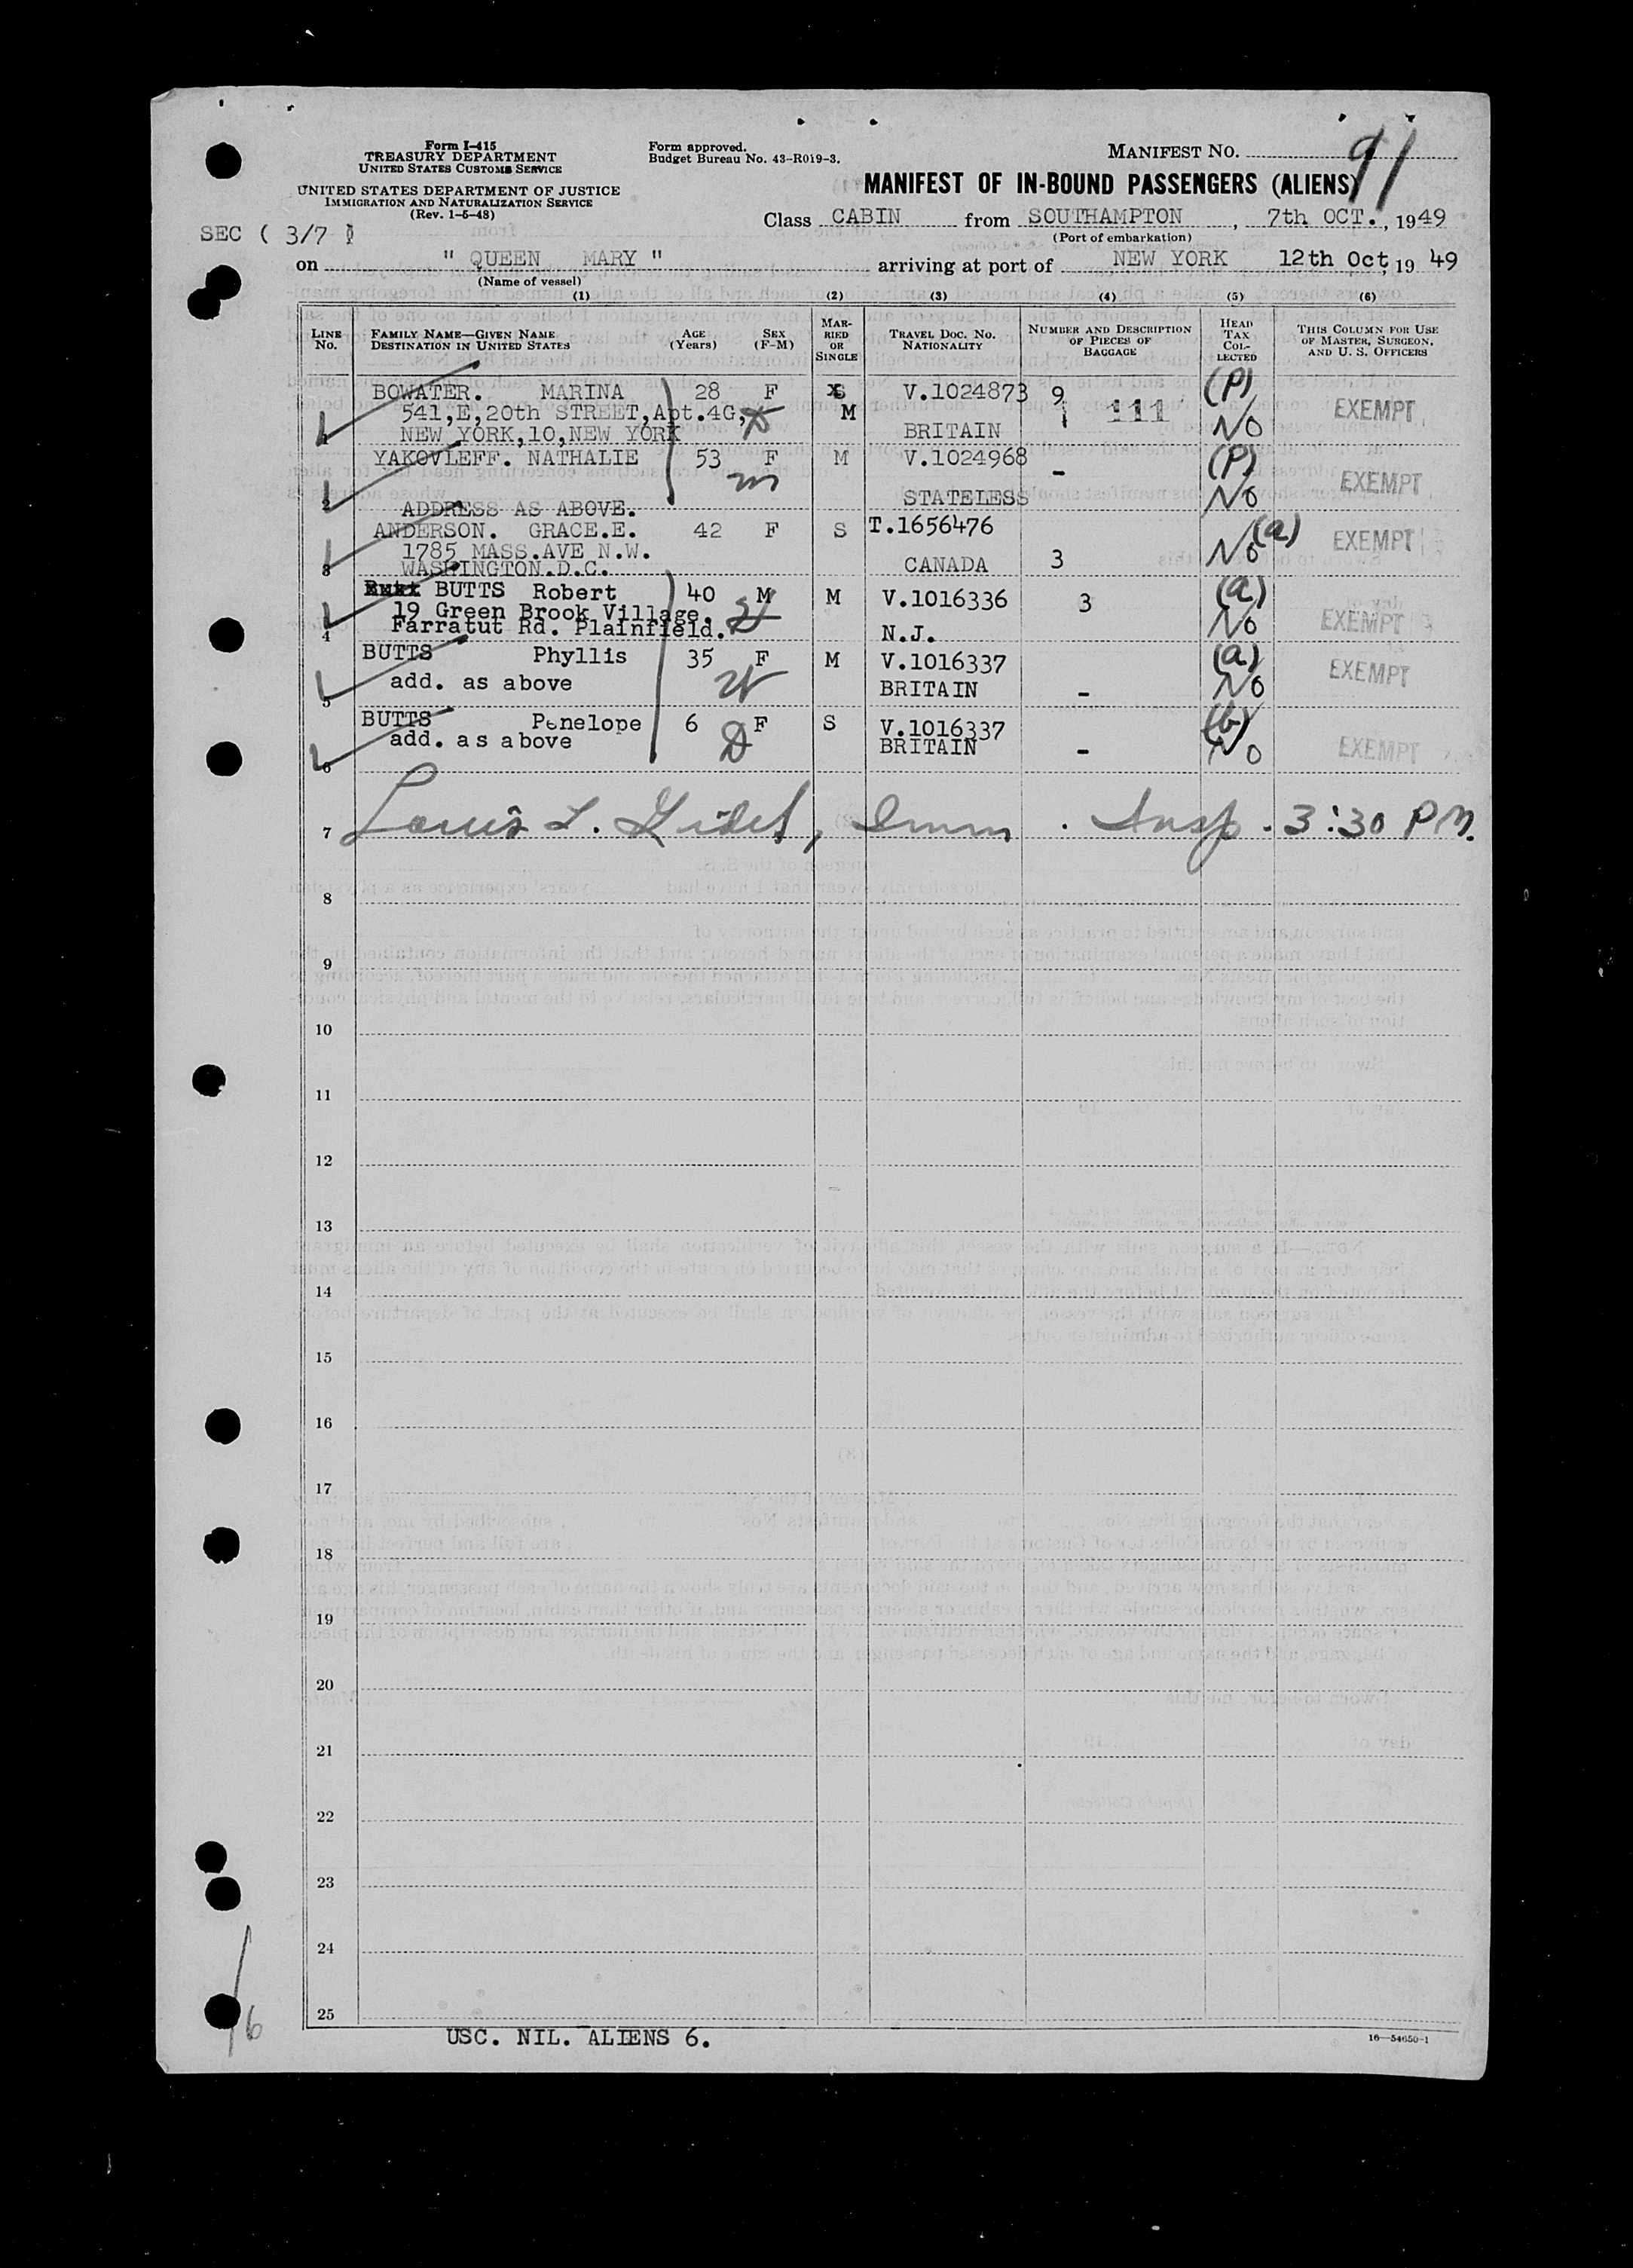 Form I-415
TREASURY DEPARTMENT
UNITED STATES CUSTOMS SERVICE
UNITED STATES DEPARTMENT OF JUSTICE
IMMIGRATION AND NATURALIZATION SERVICE
(Rev. 1-5-48)
Form approved.
Budget Bureau No. 43-R019-3.
MANIFEST NO. 91
MANIFEST OF IN-BOUND PASSENGERS (ALIENS)
Class CABIN from SOUTHAMPTON, 7th OCT., 1949
(Port of embarkation)
SEC ( 3/7 )
on " QUEEN MARY " arriving at port of NEW YORK 12th Oct, 19 49
(Name of vessel)
(1) (2) (3) (4) (5) (6)
LINE No. FAMILY NAME—GIVEN NAME DESTINATION IN UNITED STATES AGE (Years) SEX (F-M) MARRIED OR SINGLE TRAVEL DOC. NO. NATIONALITY NUMBER AND DESCRIPTION OF PIECES OF BAGGAGE HEAD TAX COLLECTED THIS COLUMN FOR USE OF MASTER, SURGEON, AND U. S. OFFICERS
1 BOWATER. MARINA 28 F S V.1024873 9 (P)
541,E,20th STREET,Apt.4G, M 111 EXEMPT
NEW YORK,10,NEW YORK BRITAIN No
2 YAKOVLEFF. NATHALIE 53 F M V.1024968 - (P)
m EXEMPT
ADDRESS AS ABOVE. STATELESS No
3 ANDERSON. GRACE.E. 42 F S T.1656476 (a)
1785 MASS.AVE N.W. No EXEMPT
WASHINGTON.D.C. CANADA 3
4 BUTTS Robert 40 M M V.1016336 3 (a)
19 Green Brook Village. No EXEMPT
Farratut Rd. Plainfield. N.J.
5 BUTTS Phyllis 35 F M V.1016337 (a)
add. as above BRITAIN - No EXEMPT
6 BUTTS Penelope 6 F S V.1016337 (b)
add. as above BRITAIN - No EXEMPT
7 Louis L. , Imm. Insp. 3:30 PM.
8
9
10
11
12
13
14
15
16
17
18
19
20
21
22
23
24
25
USC. NIL. ALIENS 6.
16—54650-1